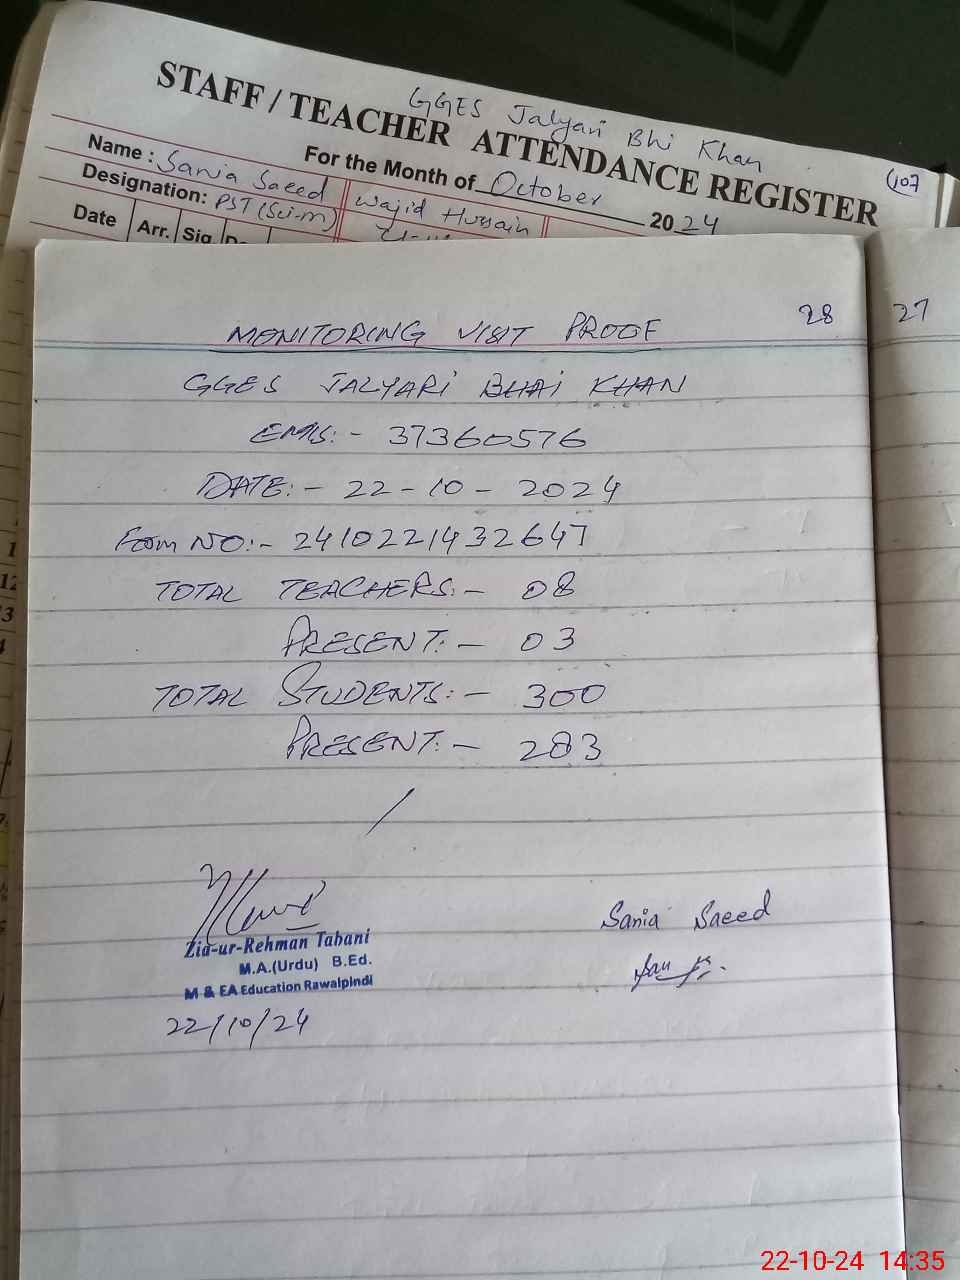 GGES Jalyari Bhi Khan
STAFF / TEACHER ATTENDANCE REGISTER
(107
For the Month of October 2024
Name : Sania Saeed
Wajid Hussain
Designation: PST (Sci-m)
Date Arr. Sig
28
27
MONITORING VISIT PROOF
GGES JALYARI BHAI KHAN
EMIS:- 37360576
DATE:- 22-10-2024
Form NO:- 2410221432647
TOTAL TEACHERS:- 08
PRESENT:- 03
TOTAL STUDENTS:- 300
PRESENT:- 283
Zia-ur-Rehman Tabani
M.A.(Urdu) B.Ed.
M & EA Education Rawalpindi
22/10/24
Sania Saeed
22-10-24 14:35